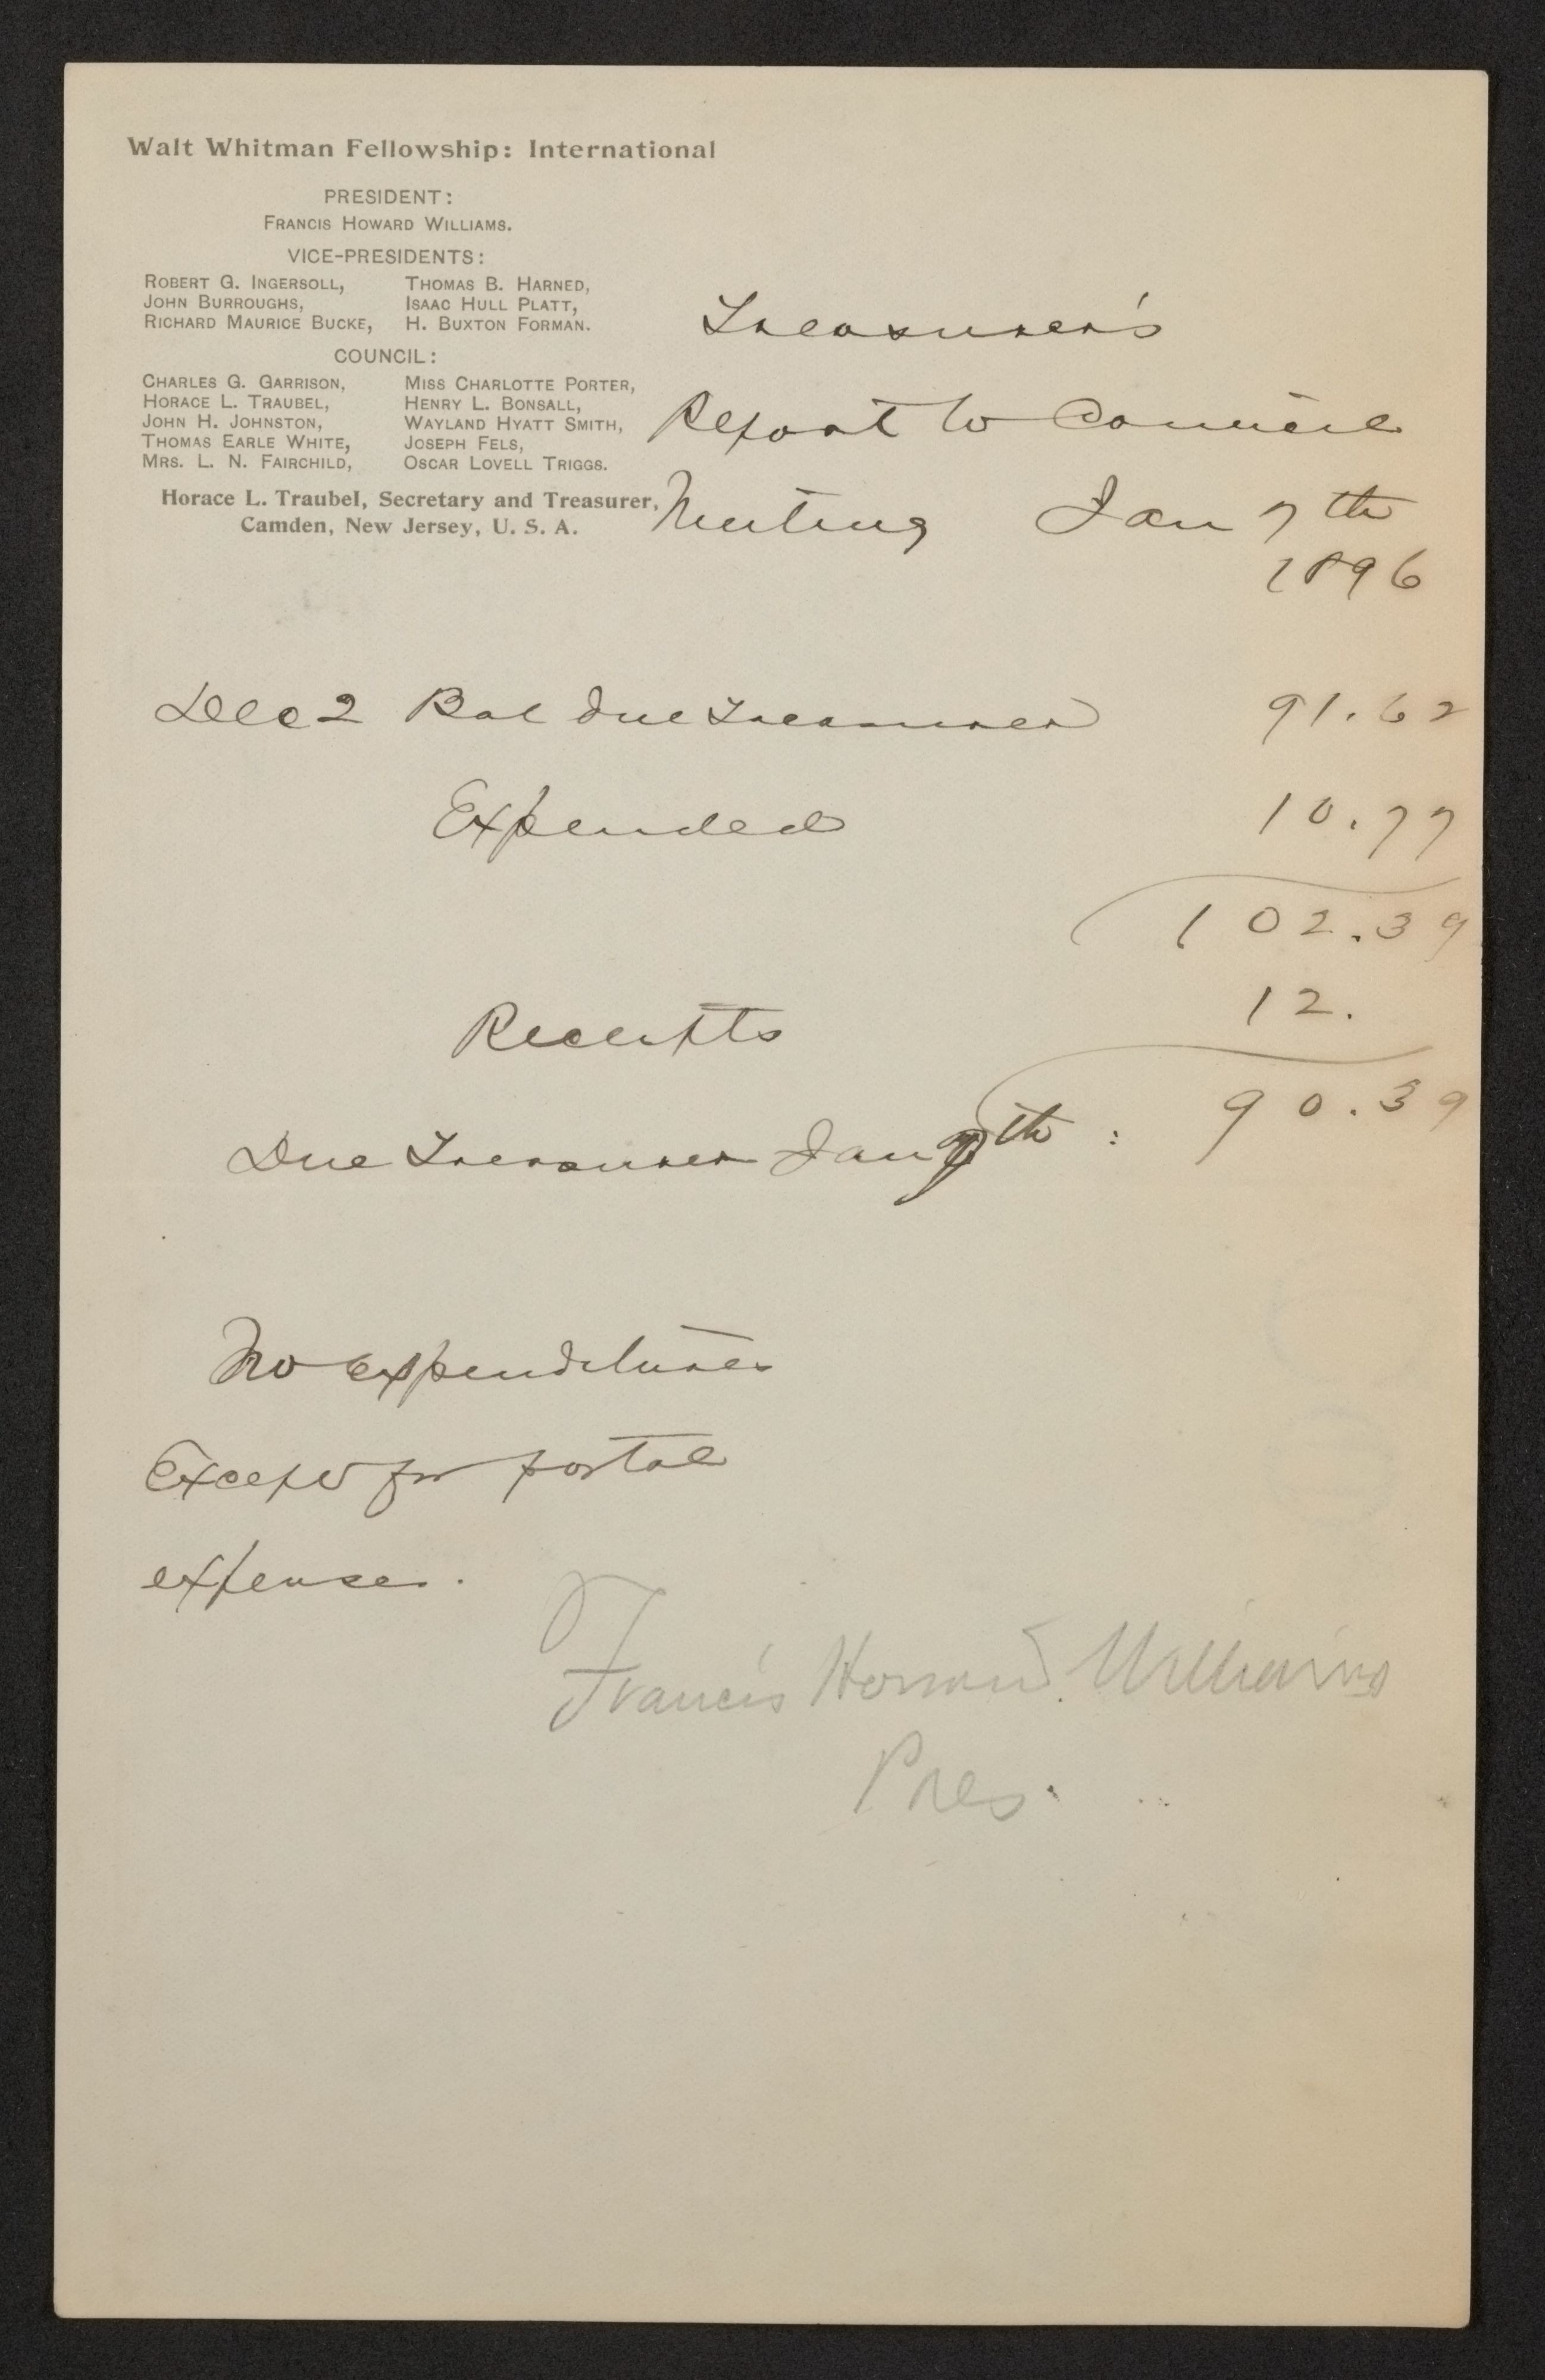 Walt Whitman Fellowship: International
PRESIDENT:
FRANCIS HOWARD WILLIAMS.
VICE-PRESIDENTS:
ROBERT G. INGERSOLL, THOMAS B. HARNED,
JOHN BURROUGHS, ISAAC HULL PLATT,
RICHARD MAURICE BUCKE, H. BUXTON FORMAN.
COUNCIL:
CHARLES G. GARRISON, MISS CHARLOTTE PORTER,
HORACE L. TRAUBEL, HENRY L. BONSALL,
JOHN H. JOHNSTON, WAYLAND HYATT SMITH,
THOMAS EARLE WHITE, JOSEPH FELS,
MRS. L. N. FAIRCHILD, OSCAR LOVELL TRIGGS.
Horace L. Traubel, Secretary and Treasurer,
Camden, New Jersey, U. S. A.
Treasurer's
Report to Council
Meeting Jan 7th
1896
Dec 2 Bal due Treasurer 91.62
Expended 10.77
102.39
Receipts 12.
Due Treasurer Jan 7th : 90.39
No expenditures
Except for postal
expenses.
Francis Howard Williams
Pres.